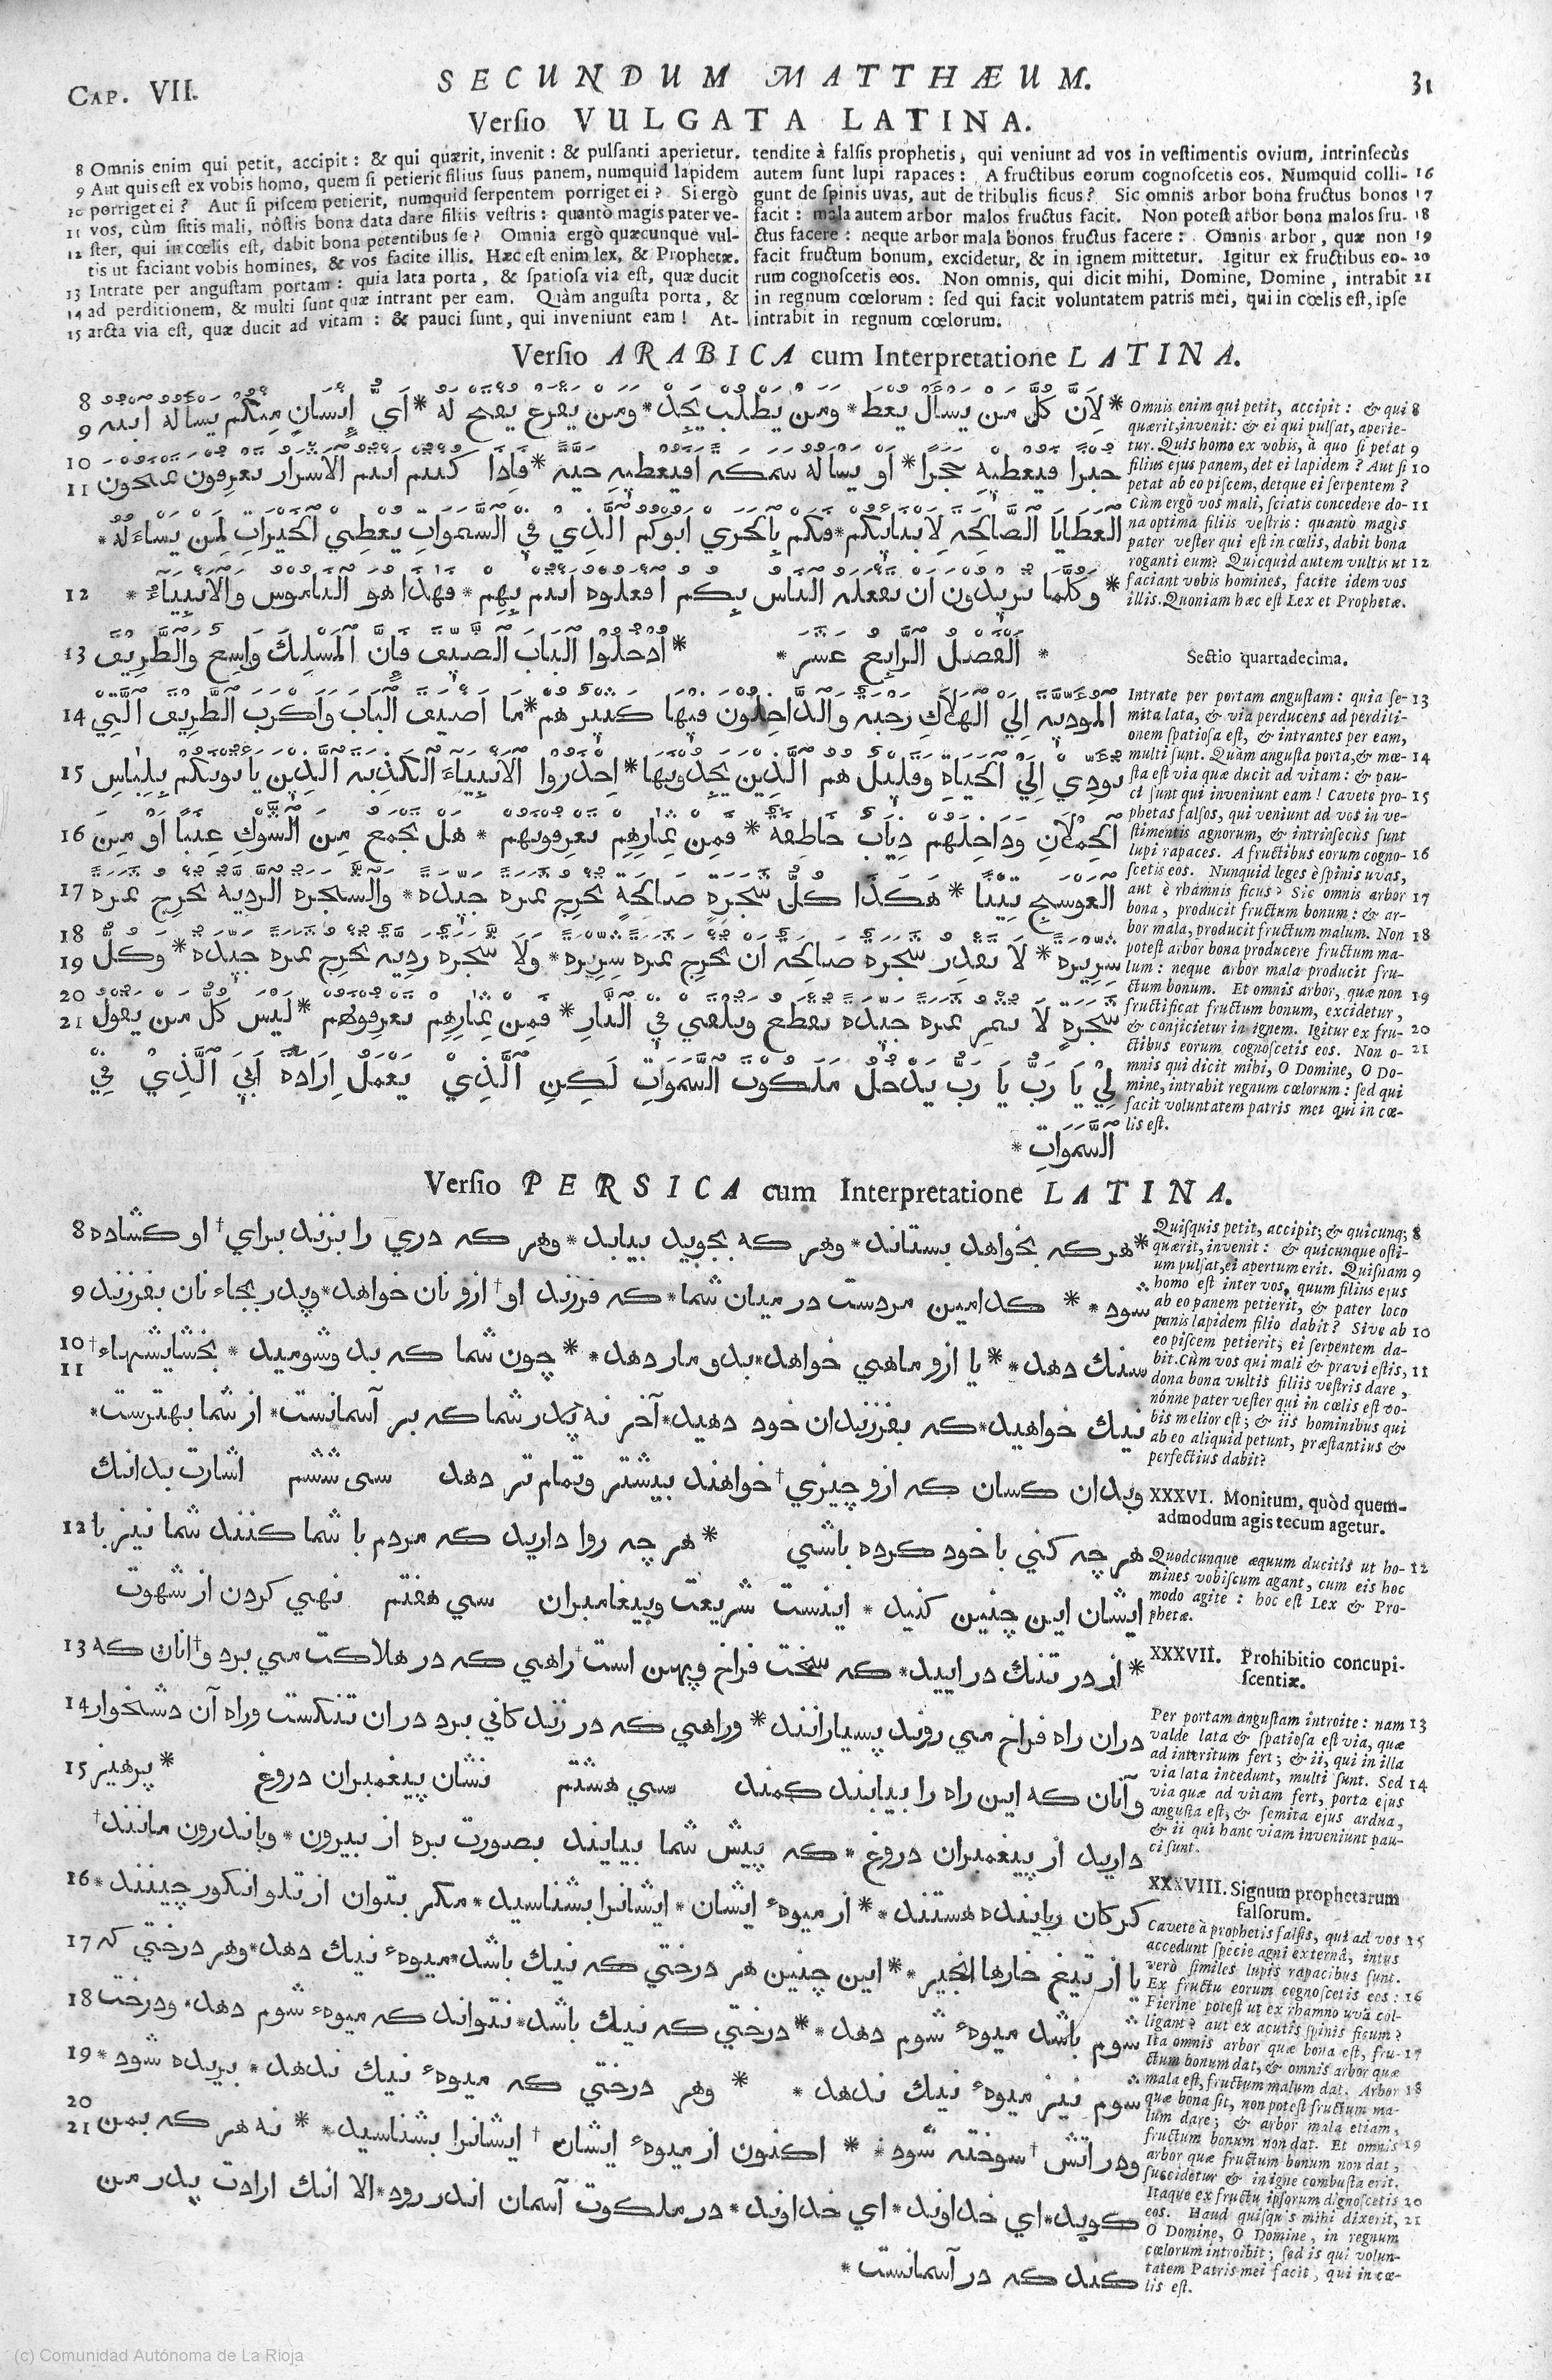 CAP. VII.
SECUNDUM MATTHÆUM.
31
Versio VULGATA LATINA.
8 Omnis enim qui petit, accipit : & qui quærit, invenit : & pulsanti aperietur.
9 Aut quis est ex vobis homo, quem si petierit filius suus panem, numquid lapidem
10 porriget ei ? Aut si piscem petierit, numquid serpentem porriget ei ? Si ergò
11 vos, cùm sitis mali, nôstis bona data dare filiis vestris : quantò magis pater ve-
12 ster, qui in cœlis est, dabit bona petentibus se ? Omnia ergò quæcunque vul-
tis ut faciant vobis homines, & vos facite illis. Hæc est enim lex, & Prophetæ.
13 Intrate per angustam portam : quia lata porta , & spatiosa via est, quæ ducit
14 ad perditionem, & multi sunt quæ intrant per eam. Quàm angusta porta, &
15 arcta via est, quæ ducit ad vitam : & pauci sunt, qui inveniunt eam ! At-
tendite à falsis prophetis, qui veniunt ad vos in vestimentis ovium, intrinsecùs
autem sunt lupi rapaces : A fructibus eorum cognoscetis eos. Numquid colli- 16
gunt de spinis uvas, aut de tribulis ficus ? Sic omnis arbor bona fructus bonos 17
facit : mala autem arbor malos fructus facit. Non potest arbor bona malos fru- 18
ctus facere : neque arbor mala bonos fructus facere : Omnis arbor, quæ non 19
facit fructum bonum, excidetur, & in ignem mittetur. Igitur ex fructibus eo- 20
rum cognoscetis eos. Non omnis, qui dicit mihi, Domine, Domine , intrabit 21
in regnum cœlorum : sed qui facit voluntatem patris mei, qui in cœlis est, ipse
intrabit in regnum cœlorum.
Versio ARABICA cum Interpretatione LATINA.
8 * لِاَنَّ كُلَّ مَنْ يَسْأَلُ يُعْطَ * وَمَنْ يَطْلُبْ يَجِدْ * وَمَنْ يَقْرَعْ يُفْتَحْ لَهُ * اَيُّ إِنْسَانٍ مِنْكُمْ يَسْأَلُهُ ٱبْنُهُ
9
10 خُبْزًا فَيُعْطِيهِ حَجَرًا * اَوْ يَسْأَلُهُ سَمَكَةً اَفَيُعْطِيهِ حَيَّةً * فَاِذَا كُنْتُمْ اَنْتُمُ ٱلْاَشْرَارُ تَعْرِفُونَ تَمْنَحُونَ
11
ٱلْعَطَايَا ٱلصَّالِحَةَ لِاَبْنَائِكُمْ * فَكَمْ بِٱلْحَرِيِّ اَبُوكُمُ ٱلَّذِيْ فِيْ ٱلسَّمَوَاتِ يُعْطِيْ ٱلْخَيْرَاتِ لِمَنْ يَسْاَءلُهُ *
12 * وَكُلَّمَا تُرِيْدُوْنَ اَنْ يَفْعَلَهُ ٱلنَّاسُ بِكُمُ ٱفْعَلُوهُ اَنْتُمْ بِهِمْ * فَهَذَا هُوَ ٱلنَّامُوْسُ وَٱلْاَنْبِيَاءُ *
13 * اَلْفَصْلُ ٱلرَّابِعُ عَشَرَ * * اُدْخُلُوْا ٱلْبَابَ ٱلضَّيِّقَ فَإِنَّ ٱلْمَسْلِكَ وَاسِعٌ وَٱلطَّرِيْقَ
14 ٱلْمُؤَدِّيَةَ اِلَيْ ٱلْهَلَاكِ رَحْبَةٌ وَٱلدَّاخِلُوْنَ فِيْهَا كَثِيْرٌ هُمْ * مَا اَضْيَقَ ٱلْبَابَ وَاَكْرَبَ ٱلطَّرِيْقَ ٱلَّتِيْ
15 تُؤَدِّيْ اِلَيْ ٱلْحَيَاةِ وَقَلِيْلٌ هُمُ ٱلَّذِيْنَ يَجِدُوْنَهَا * اِحْذَرُوْا ٱلْاَنْبِيَآءَ ٱلْكَذِبَةَ ٱلَّذِيْنَ يَأْتُوْنَكُمْ بِلِبَاسِ
16 ٱلْحُمْلَانِ وَدَاخِلُهُمْ ذِيَابٌ خَاطِفَةٌ * فَمِنْ ثِمَارِهِمْ تَعْرِفُونَهُمْ * هَلْ يُجْمَعُ مِنَ ٱلشَّوْكِ عِنَبًا اَوْ مِنَ
17 ٱلْعَوْسَجِ تِيْنًا * هَكَذَا كُلُّ شَجَرَةٍ صَالِحَةٍ تُخْرِجُ ثَمَرَةً جَيِّدَةً * وَٱلشَّجَرَةُ ٱلرَّدِيَّةُ تُخْرِجُ ثَمَرَةً
18 شِرِّيرَةً * لَا تَقْدِرُ شَجَرَةٌ صَالِحَةٌ اَنْ تُخْرِجَ ثَمَرَةً شِرِّيرَةً * وَلَا شَجَرَةٌ رَدِيَّةٌ تُخْرِجُ ثَمَرَةً جَيِّدَةً * وَكُلُّ
19
20 شَجَرَةٍ لَا تُثْمِرُ ثَمَرَةً جَيِّدَةً تُقْطَعُ وَتُلْقَيْ فِيْ ٱلنَّارِ * فَمِنْ ثِمَارِهِمْ تَعْرِفُوْنَهُمْ * لَيْسَ كُلُّ مَنْ يَقُوْلُ
21
لِيْ يَا رَبُّ يَا رَبُّ يَدْخُلُ مَلَكُوْتَ ٱلسَّمَوَاتِ لَكِنِ ٱلَّذِيْ يَعْمَلُ اِرَادَةَ اَبِيَ ٱلَّذِيْ فِيْ
ٱلسَّمَوَاتِ *
Omnis enim qui petit, accipit : & qui 8
quærit, invenit: & ei qui pulsat, aperie-
tur. Quis homo ex vobis, à quo si petat 9
filius ejus panem, det ei lapidem ? Aut si 10
petat ab eo piscem, detque ei serpentem ?
Cùm ergò vos mali, sciatis concedere do- 11
na optima filiis vestris : quantò magis
pater vester qui est in cœlis, dabit bona
roganti eum ? Quicquid autem vultis ut 12
faciant vobis homines, facite idem vos
illis. Quoniam hæc est Lex et Prophetæ.
Sectio quartadecima.
Intrate per portam angustam : quia se- 13
mita lata, & via perducens ad perditi-
onem spatiosa est, & intrantes per eam,
multi sunt. Quàm angusta porta, & mœ- 14
sta est via quæ ducit ad vitam : & pau-
ci sunt qui inveniunt eam ! Cavete pro- 15
phetas falsos, qui veniunt ad vos in ve-
stimentis agnorum, & intrinsecùs sunt
lupi rapaces. A fructibus eorum cogno- 16
scetis eos. Nunquid leges è spinis uvas,
aut è rhamnis ficus ? Sic omnis arbor 17
bona, producit fructum bonum : & ar-
bor mala, producit fructum malum. Non 18
potest arbor bona producere fructum ma-
lum : neque arbor mala producit fru-
ctum bonum. Et omnis arbor, quæ non 19
fructificat fructum bonum, excidetur,
& conjicietur in ignem. Igitur ex fru- 20
ctibus eorum cognoscetis eos. Non o- 21
mnis qui dicit mihi, O Domine, O Do-
mine, intrabit regnum cœlorum : sed qui
facit voluntatem patris mei qui in cœ-
lis est.
Versio PERSICA cum Interpretatione LATINA.
8 * هر كه بخواهد بستاند * وهر كه بجويد بيابد * وهر كه دري را بزند براي † او كشاده
9 شود * * كدامين مردست در ميان شما * كه فرزند او † ازو نان خواهد * وپدر بجاء نان بفرزند
10 سنك دهد * * يا ازو ماهي خواهد * بدو مار دهد * * چون شما كه بد وشوميد * بخشايشهاء †
11
نيك خواهيد * كه بفرزندان خود دهيد * آخر نه پدر شما كه بر آسمانست * از شما بهترست *
وبدان كسان كه ازو چيزي † خواهند بيشتر وتمام تر دهد سي ششم اشارت بدانك
12 هر چه كني با خود كرده باشي * هر چه روا داريد كه مردم با شما كنند شما نيز با
ايشان اين چنين كنيد * اينست شريعت وپيغامبران سي هفتم نهي كردن از شهوت
13 * از در تنك در اييد * كه سخت فراخ وپهن است † راهي كه در هلاكت مي برد وانان كه
14 دران راه فراخ مي روند بسيارانند * وراهي كه در زندكاني برد دران تنكست وراه آن دشخوار
15 وآنان كه اين راه را بيابند كمند سي هشتم نشان پيغمبران دروغ * پرهيز
داريد از پيغمبران دروغ * كه پيش شما بيايند بصورت بره از بيرون * وباندرون مانند †
16 كركان رباينده هستند * * از ميوهٔ ايشان * ايشانرا بشناسيد * مكر بتوان از تلو انكور چينند *
17 يا از تيغ خارها انجير * * اين چنين هر درختي كه نيك باشد * ميوهٔ نيك دهد * وهر درختي كه
18 شوم باشد ميوهٔ شوم دهد * * درختي كه نيك باشد * نتواند كه ميوهٔ شوم دهد * ودرخت
19 شوم نيز ميوهٔ نيك ندهد * * وهر درختي كه ميوهٔ نيك ندهد * بريده شود *
20 ودر اتش † سوخته شود * * اكنون از ميوهٔ ايشان † ايشانرا بشناسيد * * نه هر كه بمن
21
كويد * اي خداوند * اي خداوند * در ملكوت آسمان اندر رود * الا انك ارادت پدر من
كند كه در آسمانست *
Quisquis petit, accipit; & quicunq; 8
quærit, invenit : & quicunque osti-
um pulsat, ei apertum erit. Quisnam 9
homo est inter vos, quum filius ejus
ab eo panem petierit, & pater loco
panis lapidem filio dabit ? Sive ab 10
eo piscem petierit, ei serpentem da-
bit. Cùm vos qui mali & pravi estis, 11
dona bona vultis filiis vestris dare,
nónne pater vester qui in cœlis est vo-
bis melior est; & iis hominibus qui
ab eo aliquid petunt, præstantius &
perfectius dabit?
XXXVI. Monitum, quòd quem-
admodum agis tecum agetur.
Quodcunque æquum ducitis ut ho- 12
mines vobiscum agant, cum eis hoc
modo agite : hoc est Lex & Pro-
phetæ.
XXXVII. Prohibitio concupi-
scentiæ.
Per portam angustam introite : nam 13
valde lata & spatiosa est via, quæ
ad interitum fert; & ii, qui in illa
via lata incedunt, multi sunt. Sed 14
via quæ ad vitam fert, porta ejus
angusta est, & semita ejus ardua,
& ii qui hanc viam inveniunt pau-
ci sunt.
XXXVIII. Signum prophetarum
falsorum.
Cavete à prophetis falsis, qui ad vos 15
accedunt specie agni externâ, intus
verò similes lupis rapacibus sunt.
Ex fructu eorum cognoscetis eos : 16
Fierine potest ut ex rhamno uvã col-
ligant ? aut ex acutis spinis ficum ?
Ita omnis arbor quæ bona est, fru- 17
ctum bonum dat, & omnis arbor quæ
mala est, fructum malum dat. Arbor 18
quæ bona sit, non potest fructum ma-
lum dare; & arbor mala etiam,
fructum bonum non dat. Et omnis 19
arbor quæ fructum bonum non dat,
succidetur & in igne combusta erit.
Itaque ex fructu ipsorum dignoscetis 20
eos. Haud quisquis mihi dixerit, 21
O Domine, O Domine, in regnum
cœlorum introibit; sed is qui volun-
tatem Patris mei facit, qui in cœ-
lis est.
(c) Comunidad Autónoma de La Rioja